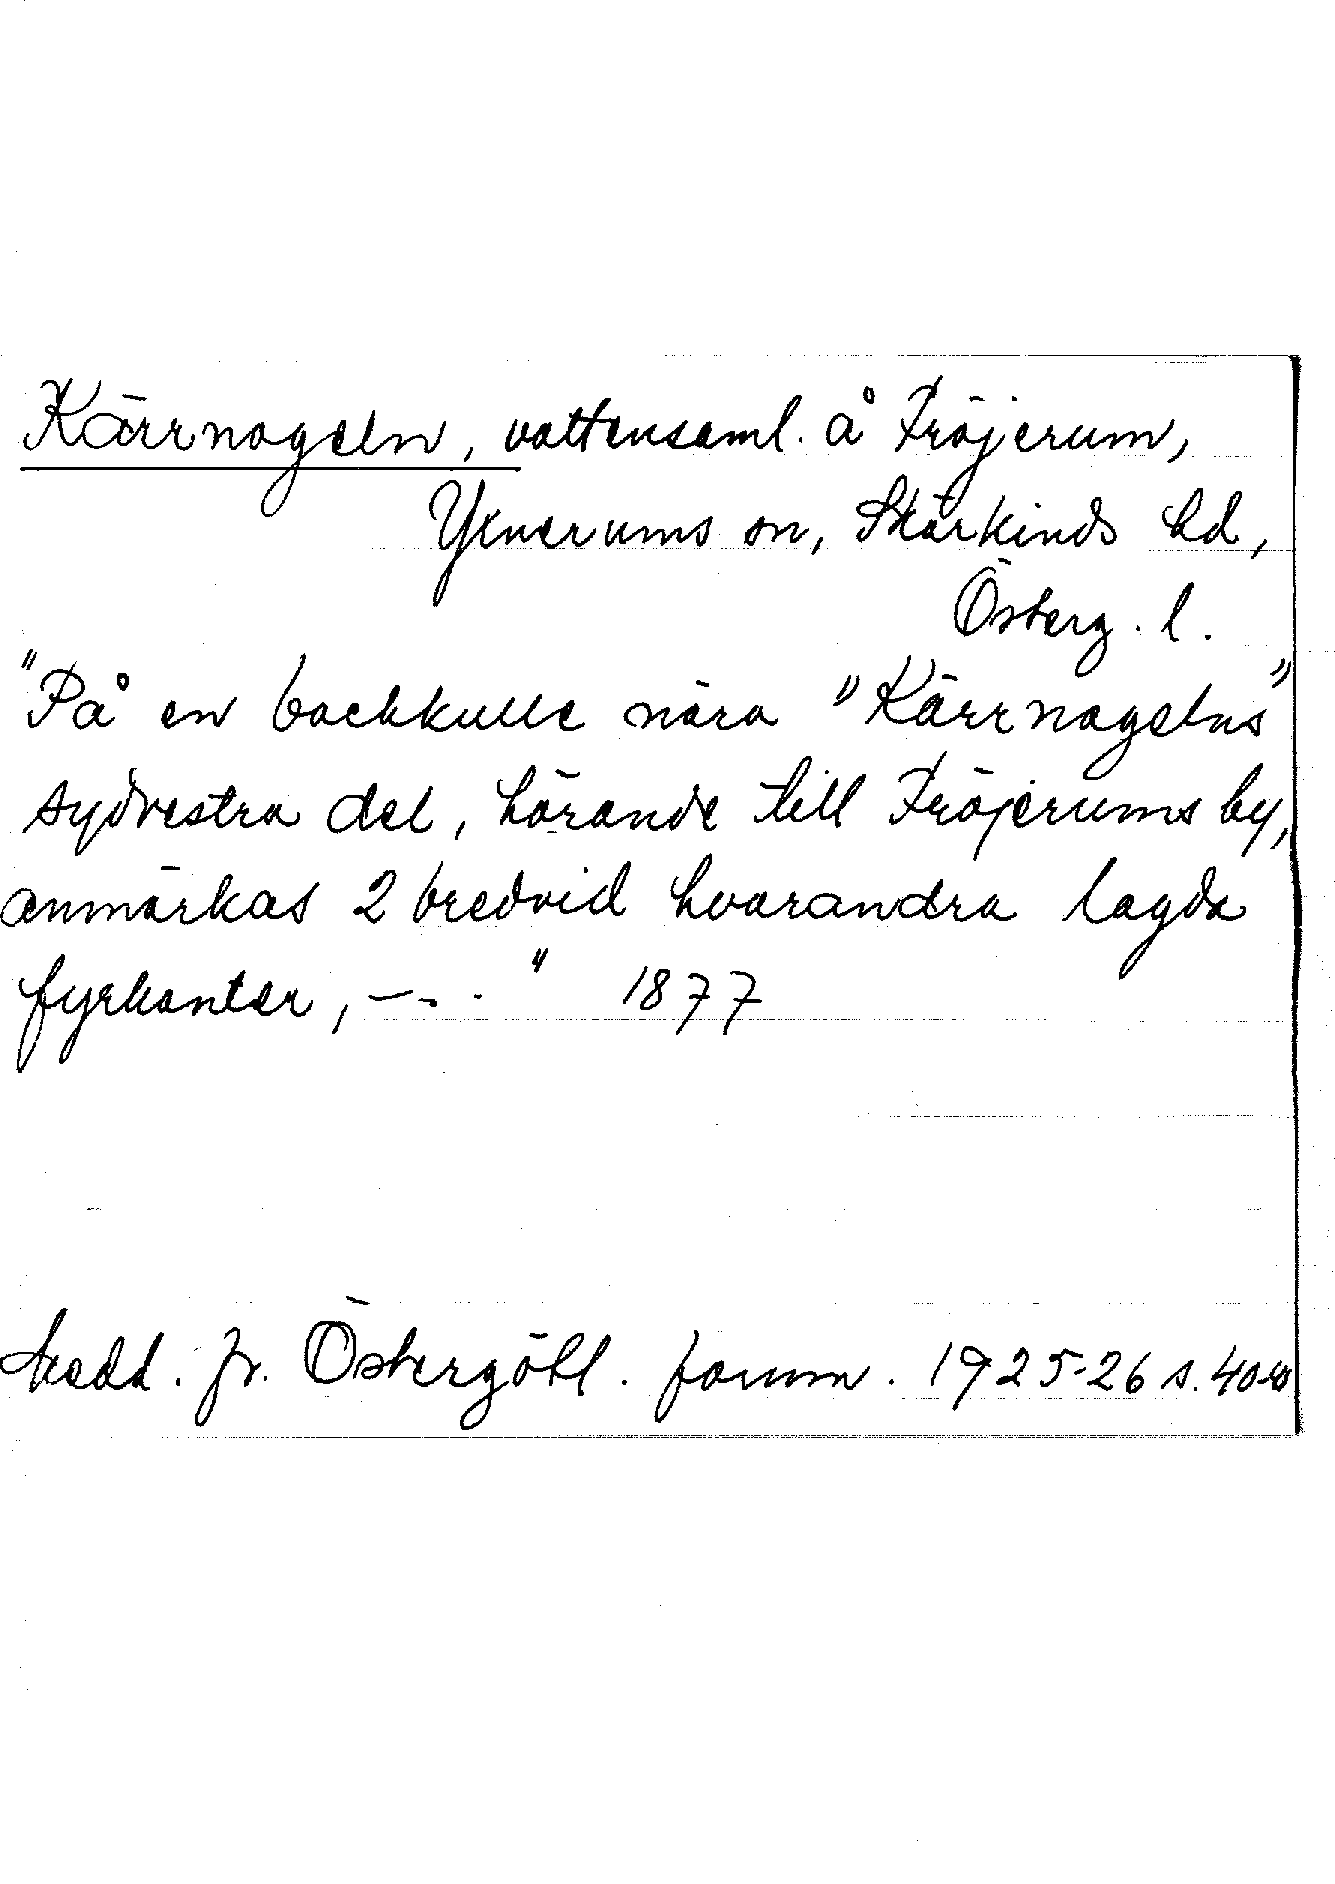 Kärrnageln, vattensaml. å Fröjerum,
Yxnerums sn, Skärkinds hd,
Österg. l.
"På en backkulle nära "Kärrnagelns"
sydvestra del, hörande till Fröjerums by,
anmärkas 2 bredvid hvarandra lagda
fyrkanter, — . . " 1877
Medd. fr. Östergötl. fornm. 1925-26 s.